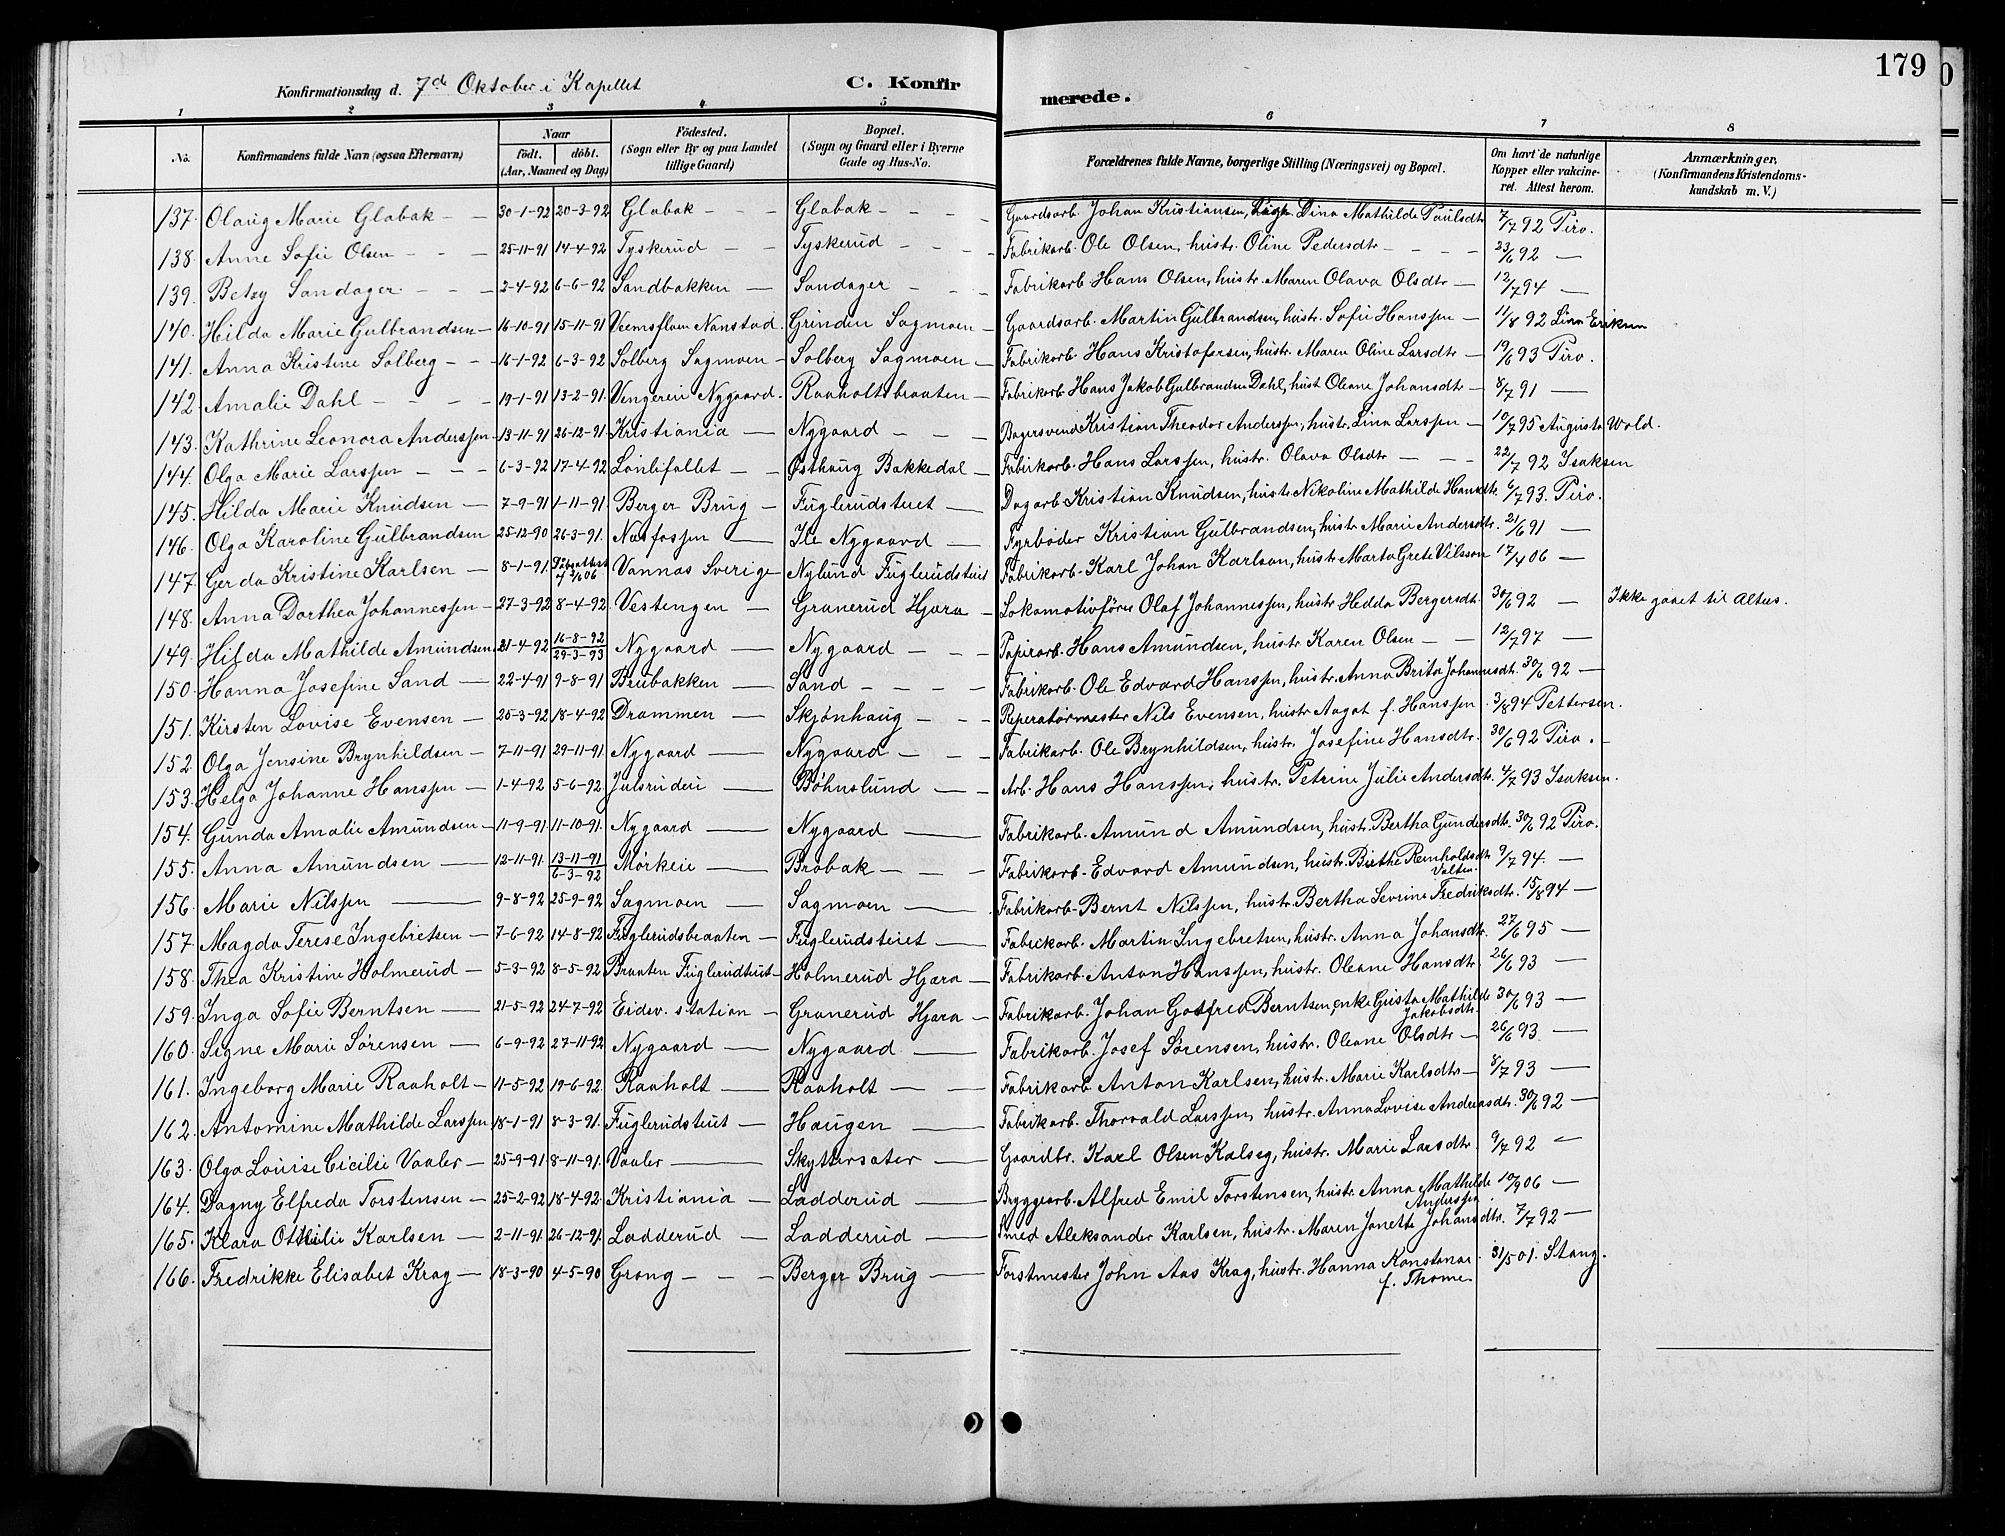 179
Konfirmationsdag d. 7de Oktober i Kapellet C. Konfirmerede.
1 2 3 4 5 6 7 8
No. Konfirmandens fulde Navn (ogsaa Efternavn) Naar födt. döbt. (Aar, Maaned og Dag) Födested. (Sogn eller By og paa Landet tillige Gaard) Bopæl. (Sogn og Gaard eller i Byerne Gade og Hus-No. Forældrenes fulde Navne, borgerlige Stilling (Næringsvei) og Bopæl. Om havt de naturlige Kopper eller vakcineret. Attest herom. Anmærkninger, (Konfirmandens Kristendomskundskab m. V.)
137. Olaug Marie Glabak 30-1-92 20-3-92 Glabak Glabak Gaardsarb. Johan Kristiansen, Dina Mathilde Paulsdtr 7/7 92 Piro.
138. Anne Sofie Olsen 25-11-91 14-4-92 Tyskerud Tyskerud Fabrikarb. Ole Olsen, hustr. Oline Pedersdtr 23/6 92 —
139. Betzy Sandager 2-4-92 6-6-92 Sandbakken Sandager Fabrikarb Hans Olsen, hustr. Maren Olava Olsdtr 12/7 94 —
140. Hilda Marie Gulbrandsen 16-10-91 15-11-91 Nanstad Grinden Sagmoen Gaardsarb. Martin Gulbrandsen, hustr. Sofie Hanssen 11/8 92 Lina Eriksen
141. Anna Kristine Solberg 16-1-92 6-3-92 Solberg Sagmoen Solberg Sagmoen Fabrikarb. Hans Kristofersen, hustr. Maren Oline Larsdtr 19/6 93 Piro.
142. Amalie Dahl 19-1-91 13-2-91 Vengereie Nygaard Raaholtsbraaten Fabrikarb. Hans Jakob Gulbrandsen Dahl, hust. Oleane Johansdtr 8/7 91 —
143. Kathrine Leonora Anderssen 13-11-91 26-12-91 Kristiania Nygaard Bagersvend Kristian Theodor Anderssen, hustr. Lina Larssen 10/7 95 Augusta Wold.
144. Olga Marie Larssen 6-3-92 17-4-92 Lønlifallet Østhaug Bakkedal Fabrikarb. Hans Larssen, hustr. Olava Olsdtr 22/7 92 Isaksen
145. Hilda Marie Knudsen 7-9-91 1-11-91 Berger Brug Fuglerudsteiet Dagarb Kristian Knudsen, hustr. Nikoline Mathilde Hansdtr. 6/7 93. Piro.
146. Olga Karoline Gulbrandsen 25-12-90 26-3-91 Natfossen Ile Nygaard Fyrbøder Kristian Gulbrandsen, hustr Marie Andersdtr. 21/6 91 —
147. Gerda Kristine Karlsen 8-1-91 Vannas Sverige Nylund Fuglerudsteiet Fabrikarb. Karl Johan Karlson, hustr Marta Grete Vilsson 17/4 06 —
148. Anna Dorthea Johannessen 27-3-92 8-4-92 Vestengen Granerud Hjæra Lokomotivfører Olaf Johannessen, hustr Hedda Bergersdt. 30/6 92 — Ikke gaaet til Alters.
149. Hilda Mathilde Amundsen 21-4-92 16-8-92 29-3-93 Nygaard Nygaard Papirarb. Hans Amundsen, hustr Karen Olsen 12/7 97 —
150. Hanna Josefine Sand 22-4-91 9-8-91 Brubakken Sand Fabrikarb. Ole Edvard Hanssen, hustr. Anna Brita Johannesdt. 30/6 92 —
151. Kirsten Lovise Evensen 25-3-92 18-4-92 Drammen Skjønhaug Reperatørmester Nils Evensen, hustr Aagot f. Hanssen 3/8 94 Pettersen.
152. Olga Jensine Brynhildsen 7-11-91 29-11-91 Nygaard Nygaard Fabrikarb. Ole Brynhildsen, hustr. Josefine Hansdtr. 30/6 92 Piro.
153. Helga Johanne Hanssen 1-4-92 5-6-92 Julsrudeie Bøhnslund Arb. Hans Hanssen, hustr. Petrine Julie Andersdtr. 4/7 93 Isaksen.
154. Gunda Amalie Amundsen 11-9-91 11-10-91 Nygaard Nygaard Fabrikarb. Amund Amundsen, hustr. Bertha Gundersdt. 30/6 92 Piro.
155. Anna Amundsen 12-11-91 13-11-91 6-3-92 Mørkeie Brøbak Fabrikarb. Edvard Amundsen, hustr. Birthe Reinholdsdtr 9/7 94. —
156. Marie Nilssen 9-8-92 25-9-92 Sagmoen Sagmoen Fabrikarb. Bernt Nilssen, hustr. Bertha Sevrine Fredriksdtr. 15/8 94 —
157. Magda Terese Ingebretsen 7-6-92 14-8-92 Fuglerudsbraaten Fuglerudsteiet Fabrikarb. Martin Ingebretsen, hustr. Anna Johansdtr. 27/6 95 —
158. Thea Kristine Holmerud 5-3-92 8-5-92 Braaten Fuglerudteiet Holmerud Hjæra Fabrikarb. Anton Hanssen, hustr. Oleane Hansdtr 26/6 93 —
159. Inga Sofie Berntsen 21-5-92 24-7-92 Eidsv. station Granerud Hjæra Fabrikarb. Johan Gotfred Berntsen, enke Gusta Mathilde Jakobsdtr. 30/6 93 —
160. Signe Marie Sørensen 6-9-92 27-11-92 Nygaard Nygaard Fabrikarb. Josef Sørensen, hustr. Oleane Olsdtr 26/6 93.
161. Ingeborg Marie Raaholt 11-5-92 19-6-92 Raaholt Raaholt Fabrikarb. Anton Karlsen, hustr. Marie Karlsdtr 8/7 93 —
162. Antomine Mathilde Larssen 18-1-91 8-3-91 Fuglerudsteiet Haugen Fabrikarb. Thorvald Larssen, hustr. Anna Lovise Andreasdtr. 30/6 92 —
163. Olga Louise Cicilie Vaaler 25-9-91 8-11-91 Vaaler Skyttersæter Gaardbr. Karl Olsen Kalseg, hustr. Marie Larsdtr. 9/7 92 —
164. Dagny Elfreda Torstensen 25-2-92 18-4-92 Kristiania Ladderud Bryggearb. Alfred Emil Torstensen, hustr. Anna Mathilde Anderssen 10/9 06 —
165. Klara Ottilie Karlsen 2-11-91 26-12-91 Ladderud Ladderud Smed Aleksander Karlsen, hustr. Maren Janette Johansdtr. 7/7 92 —
166. Fredrikke Elisabet Krag 18-3-90 4-5-90 Grong Berger Brug Forstmester John Aas Krag, hustr. Hanna Konstanse f. Thome 31/5 01. Stang.